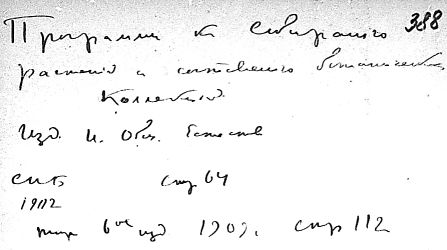 Программа к собиранию 388
растений и составлению ботанических
коллекций
Изд. И. Общ. Естеств
СПБ стр 64
1902
тоже 6ое изд 1909. стр 112